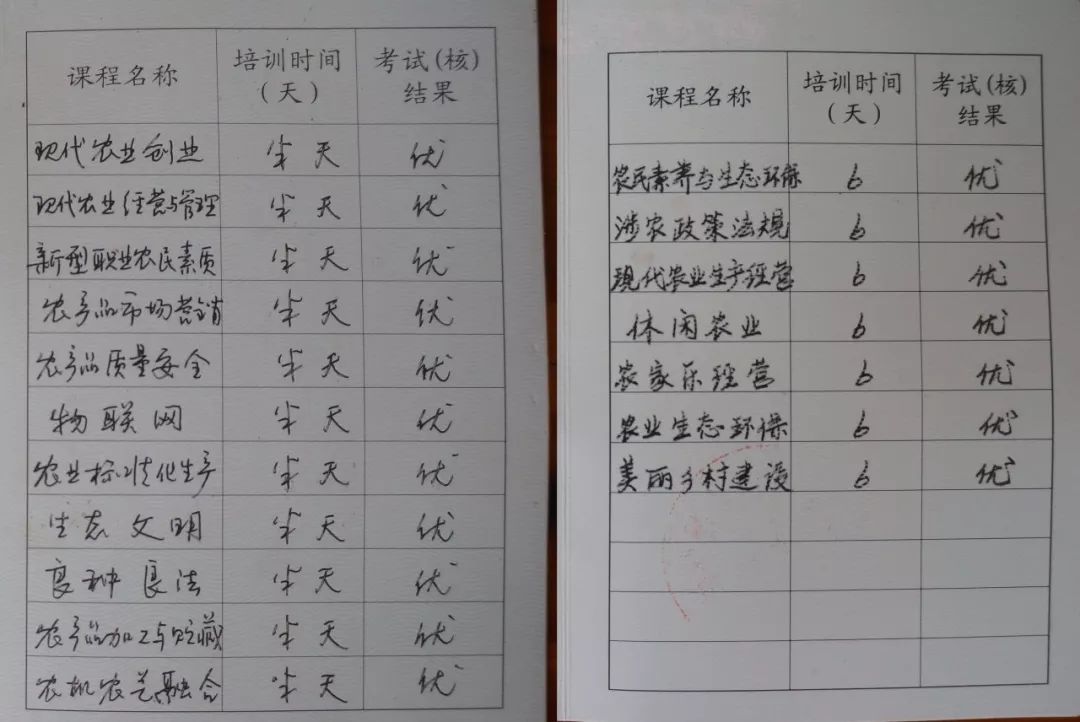 课程名称 培训时间(天) 考试(核)结果
现代农业创业 半天 优
现代农业经营与管理 半天 优
新型职业农民素质 半天 优
农产品市场营销 半天 优
农产品质量安全 半天 优
物联网 半天 优
农业标准化生产 半天 优
生态文明 半天 优
良种良法 半天 优
农产品加工与贮藏 半天 优
农机农艺融合 半天 优
课程名称 培训时间(天) 考试(核)结果
农民素养与生态环保 6 优
涉农政策法规 6 优
现代农业生产经营 6 优
休闲农业 6 优
农家乐经营 6 优
农业生态环保 6 优
美丽乡村建设 6 优